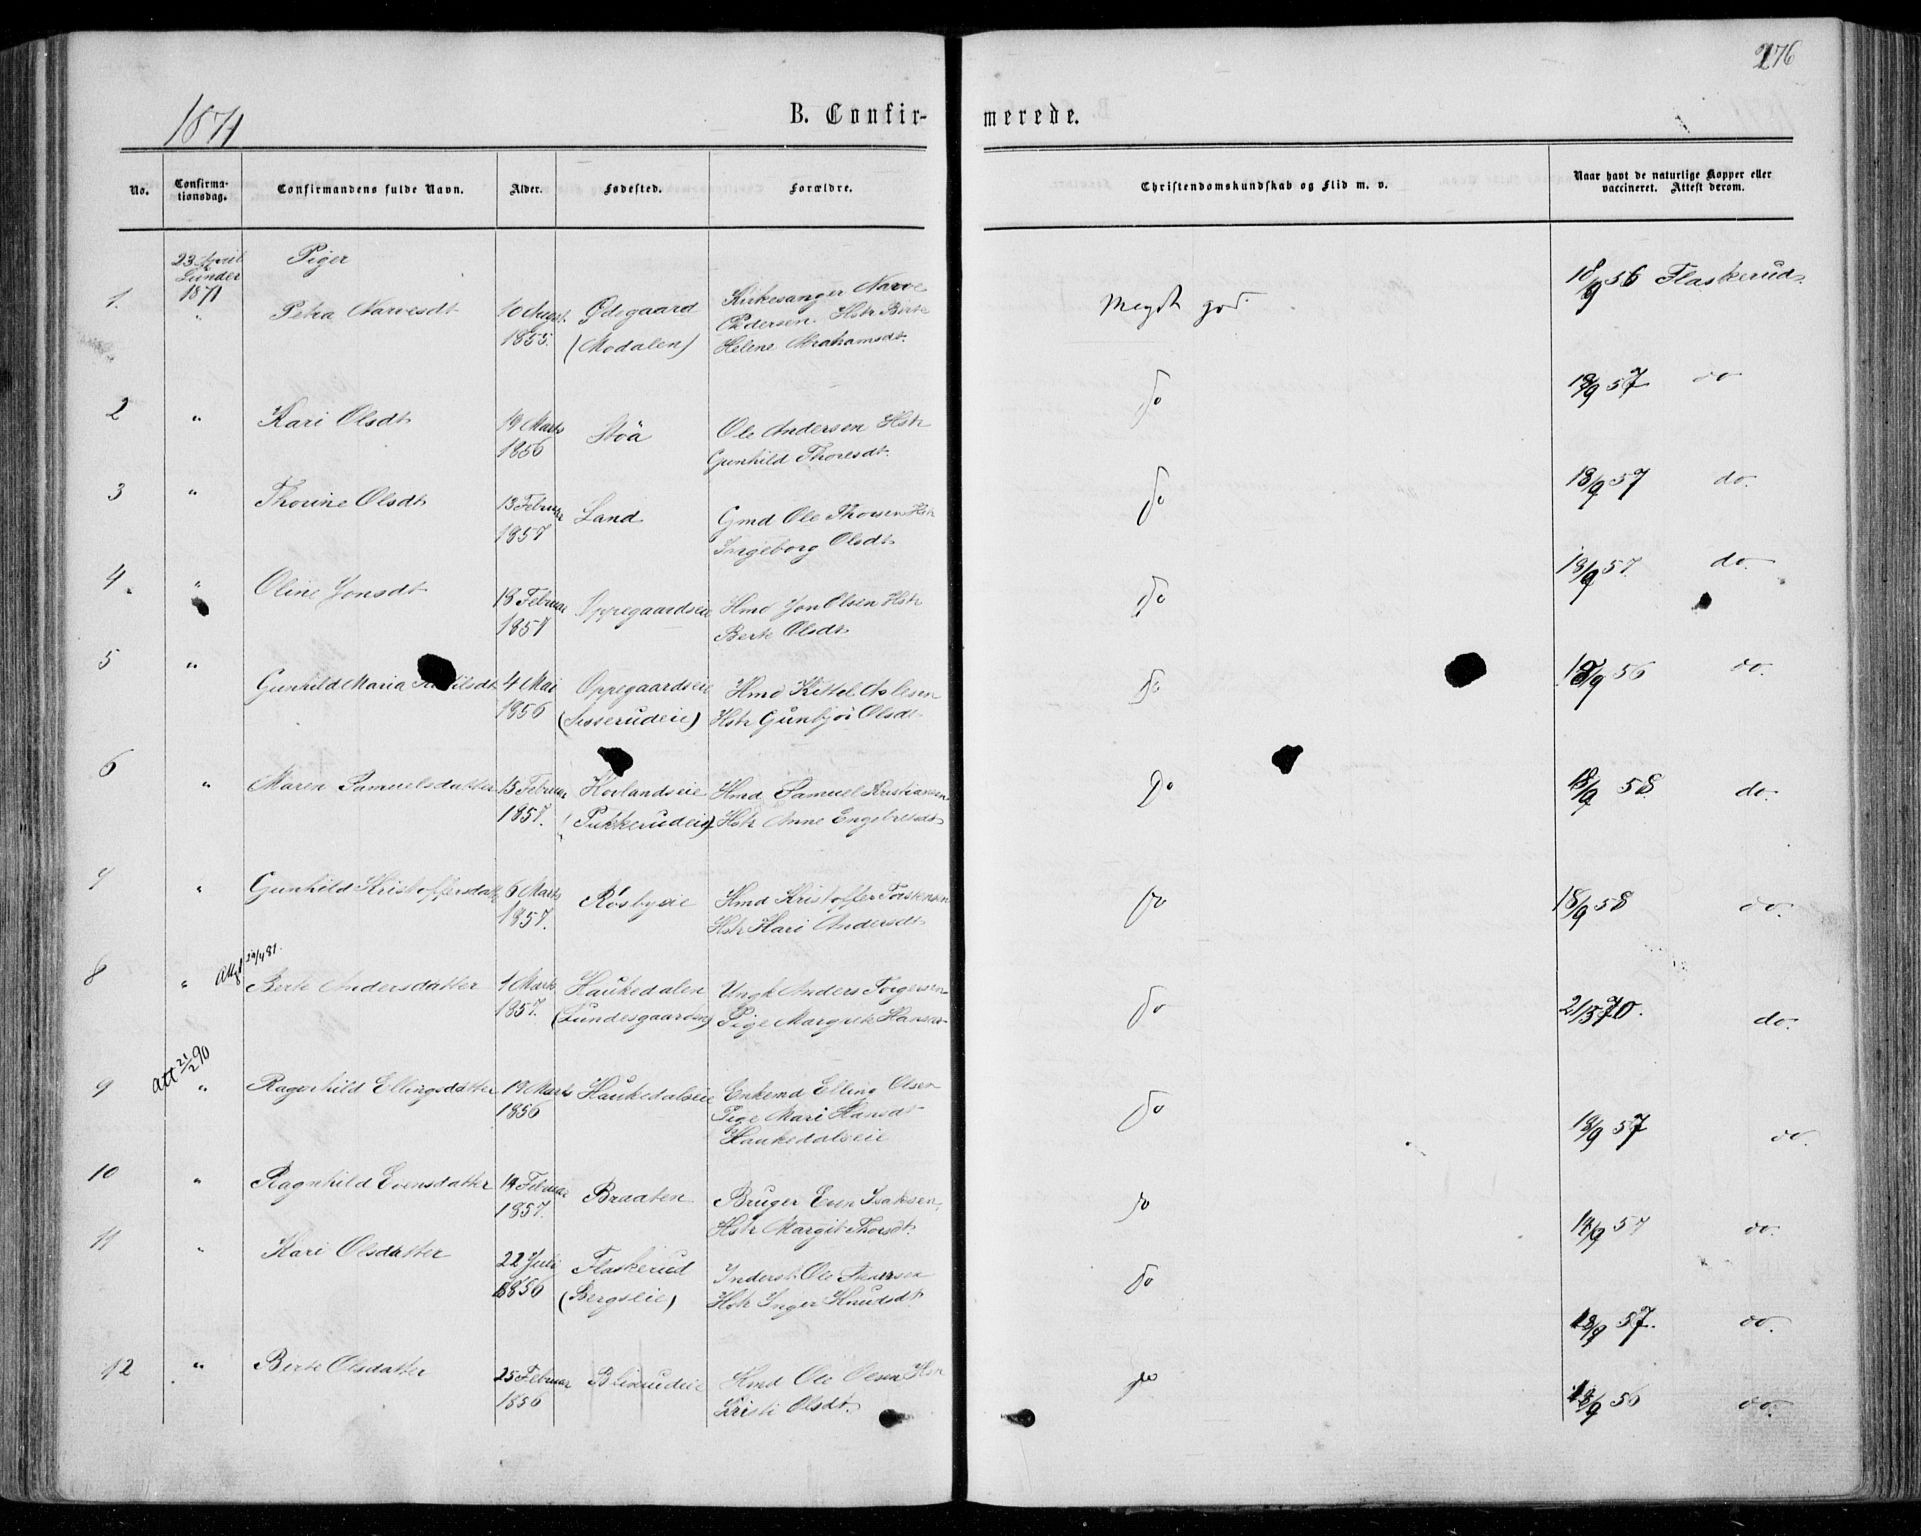 276
1871
B. Confir- merede.
No. Confirma-tionsdag. Confirmandens fulde Navn. Alder. Fødested. Forældre. Christendomskundskab og Flid m. v. Naar havt de naturlige Kopper eller vaccineret. Attest derom.
23 April Piger
Lunder
1871
1. " Petra Narvesdt 10 August Ødegaard Kirkesanger Narve Meget god. 18/9 56 Flaskerud.
1855. (Modalen) Pedersen. Hstr Berte
Helene Abrahamsdt.
2 " Kari Olsdt 19 Marts Stöa Ole Andersen Hstr do 18/9 57 do
1856 Gunhild Thoresdt.
3 " Thorine Olsdt 13 Februar Land Gmd Ole Thorsen Hstr do 18/9 57 do.
1857 Ingeborg Olsdt
4. " Oline Jonsdt 13 Februar Oppegaardseie Hmd Jon Olsen Hstr do 18/9 57. do.
1857 Berte Olsdt
5 " Gunhild Maria 4 Mai Oppegaardseie Hmd Kittel Aslesen do 18/9 56 do.
1856 (Sisserudeie) Hstr Gunbjør Olsdt
6 " Maren Samuelsdatter 15 Februar Hovlandseie Hmd Samuel Kristiansen do 18/9 58. do.
1857. (Pukkerudeie) Hstr Anne Engebretsdt
7 " Gunhild Kristoffersdatter 6 Marts Røsbyeie Hmd Kristoffer Torstensen do 18/9 58 do.
1857. Hstr Kari Andersdt
Attest 29/4 81.
8 " Berte Andersdatter 1 Marts Haukedalen Ungk Anders Torgersen do 21/5 70. do.
1857. (Lundesgaardseie) Pige Margrete Hansdt
Att 21/2 90
9 " Ragnhild Ellingsdatter 19 Marts Haukedalseie Enkemd Elling Olsen do 18/9 57 do.
1856 Pige Mari Hansdt
Haukedalseie
10 " Ragnhild Evensdatter 14 Februar Braaten Bruger Even Isaksen, do 18/9 57 do.
1857. Hstr Margit Thorsdt.
11 " Kari Olsdatter 22 Juli Flaskerud Inderst Ole do 18/9 57. do.
1856 (Bergseie) Hstr Inger Knudsdt
12 " Berte Olsdatter 25 Februar Hmd Ole Olsen Hstr do 18/9 56 do.
1856 Kristi Olsdt.